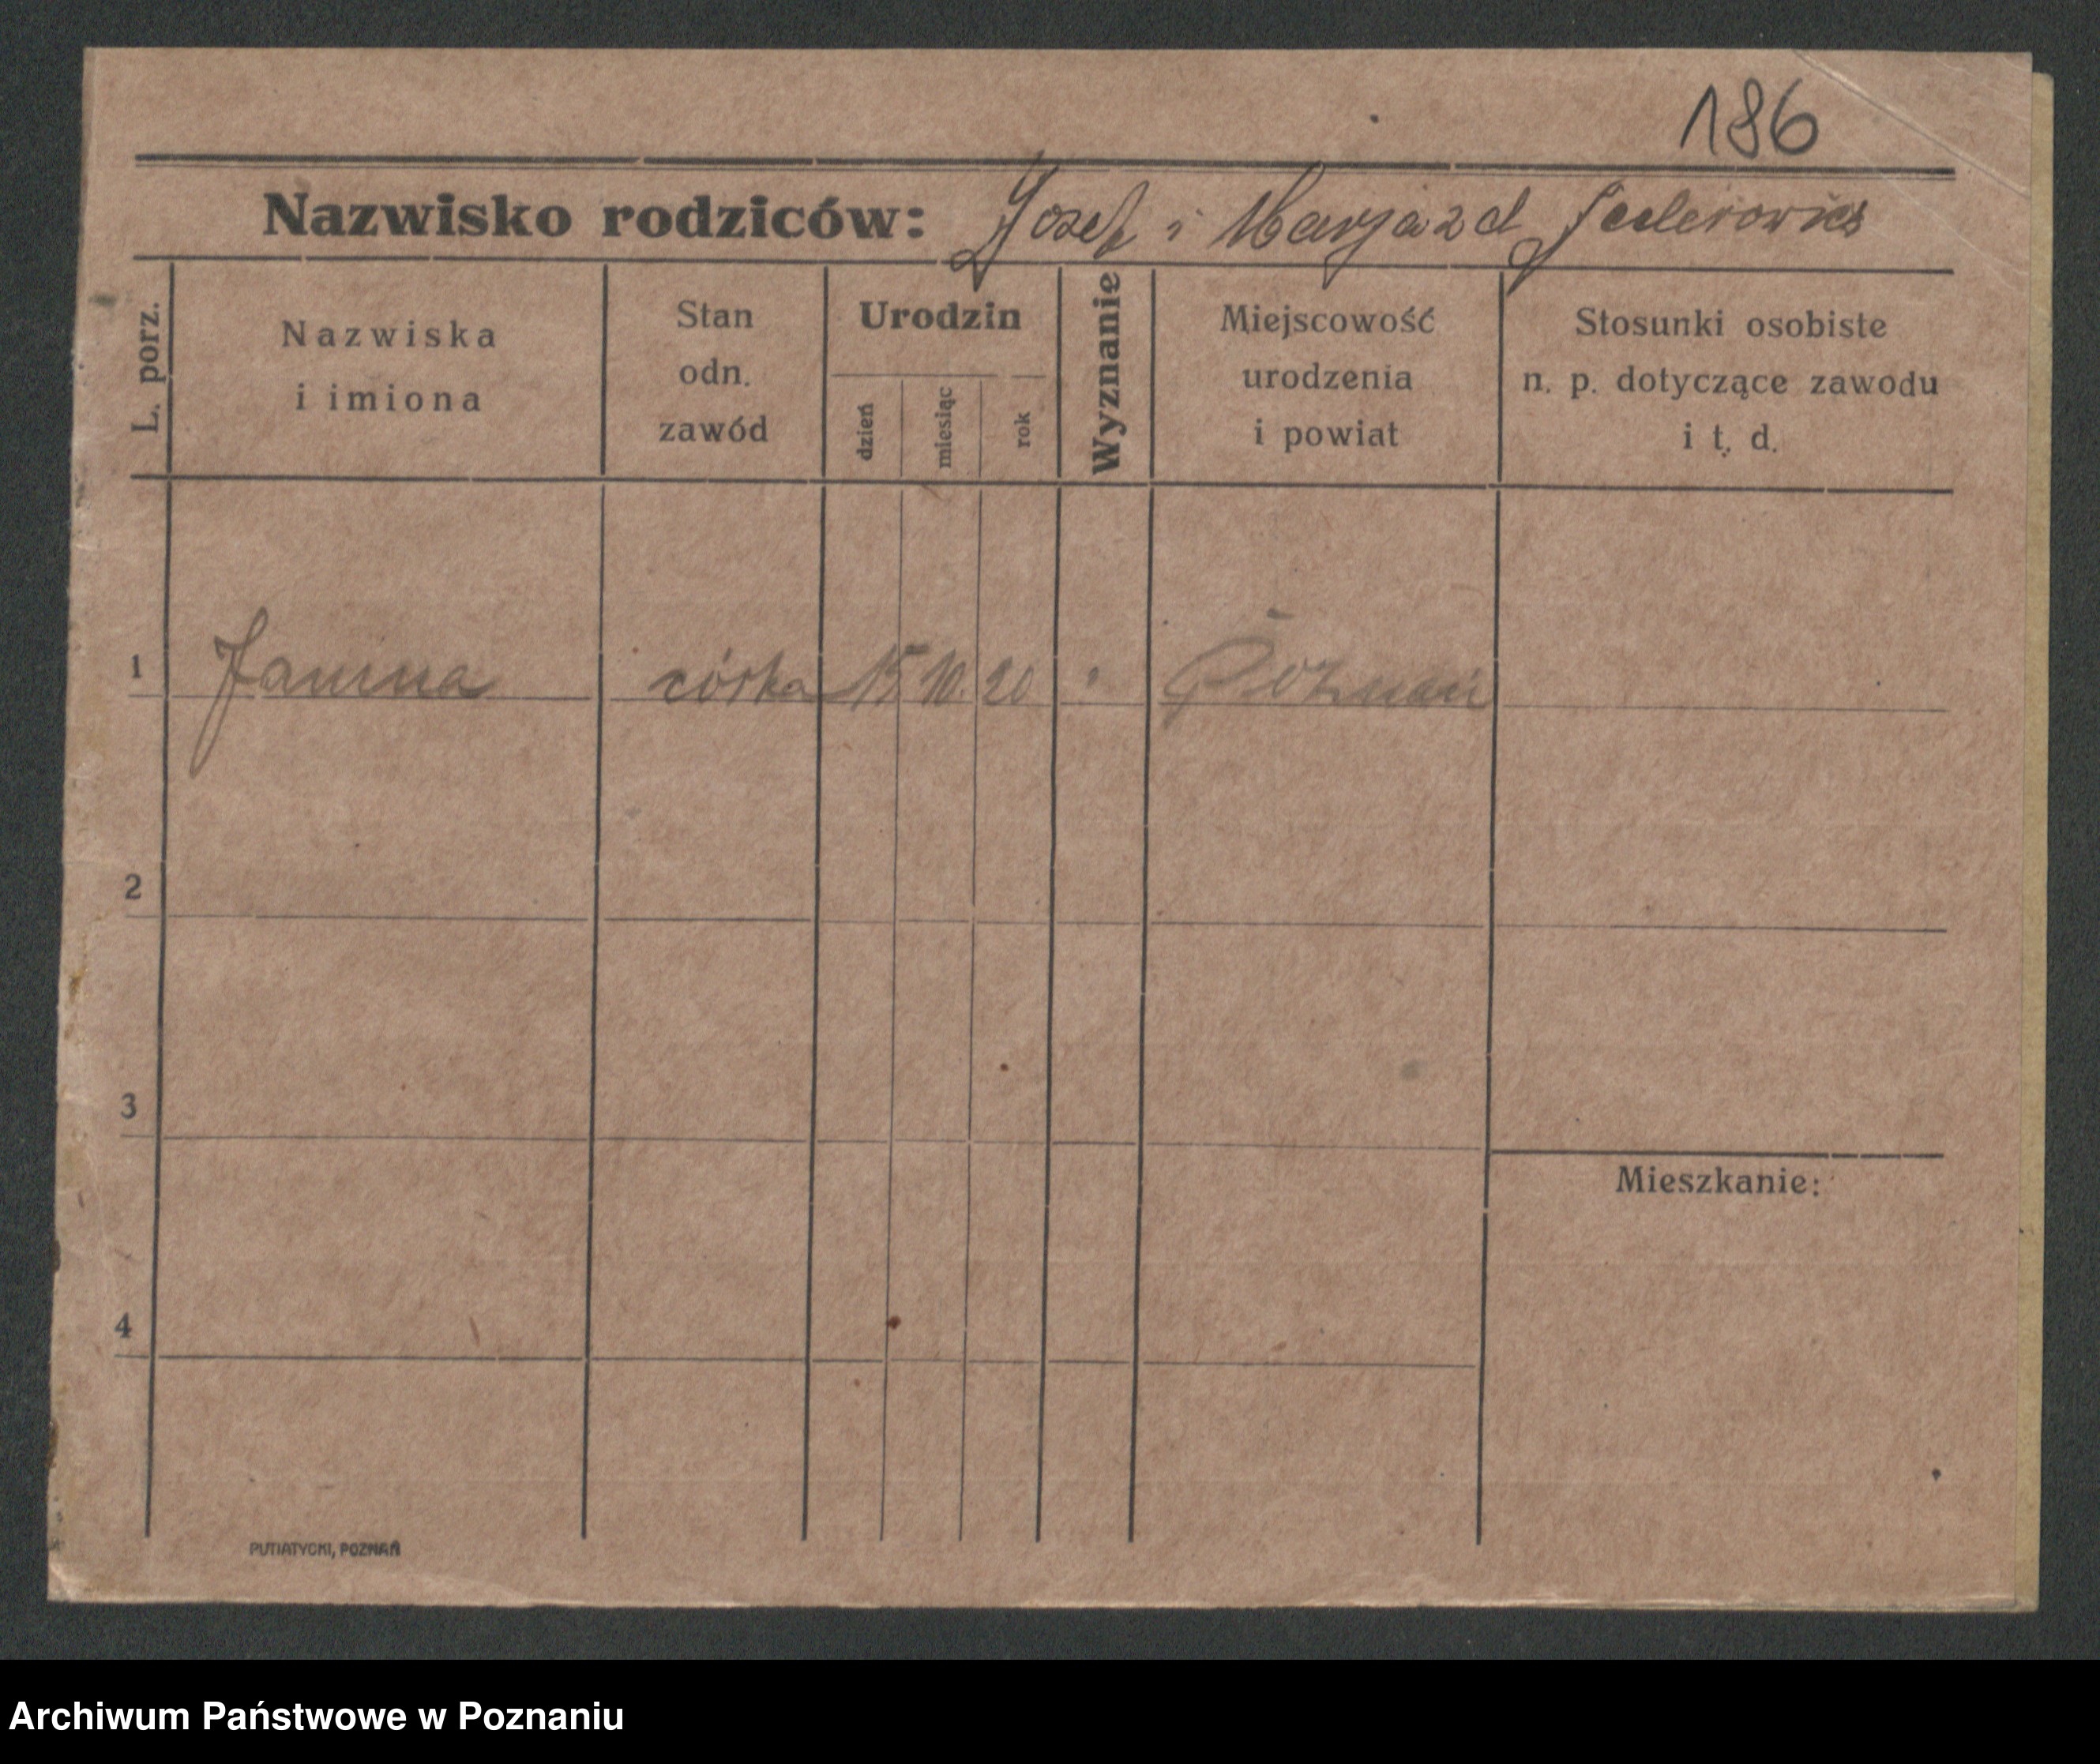 186
Nazwisko rodziców: Józef i Marja zd
L. porz.
Nazwiska i imiona
Stan odn. zawód
Urodzin
dzień
miesiąc
rok
Wyznanie
Miejscowość urodzenia i powiat
Stosunki osobiste n. p. dotyczące zawodu i t. d.
1 Janina córka 15 10. 20 " Poznań
2
3
Mieszkanie:
4
PUTIATYCKI, POZNAŃ
Archiwum Państwowe w Poznaniu